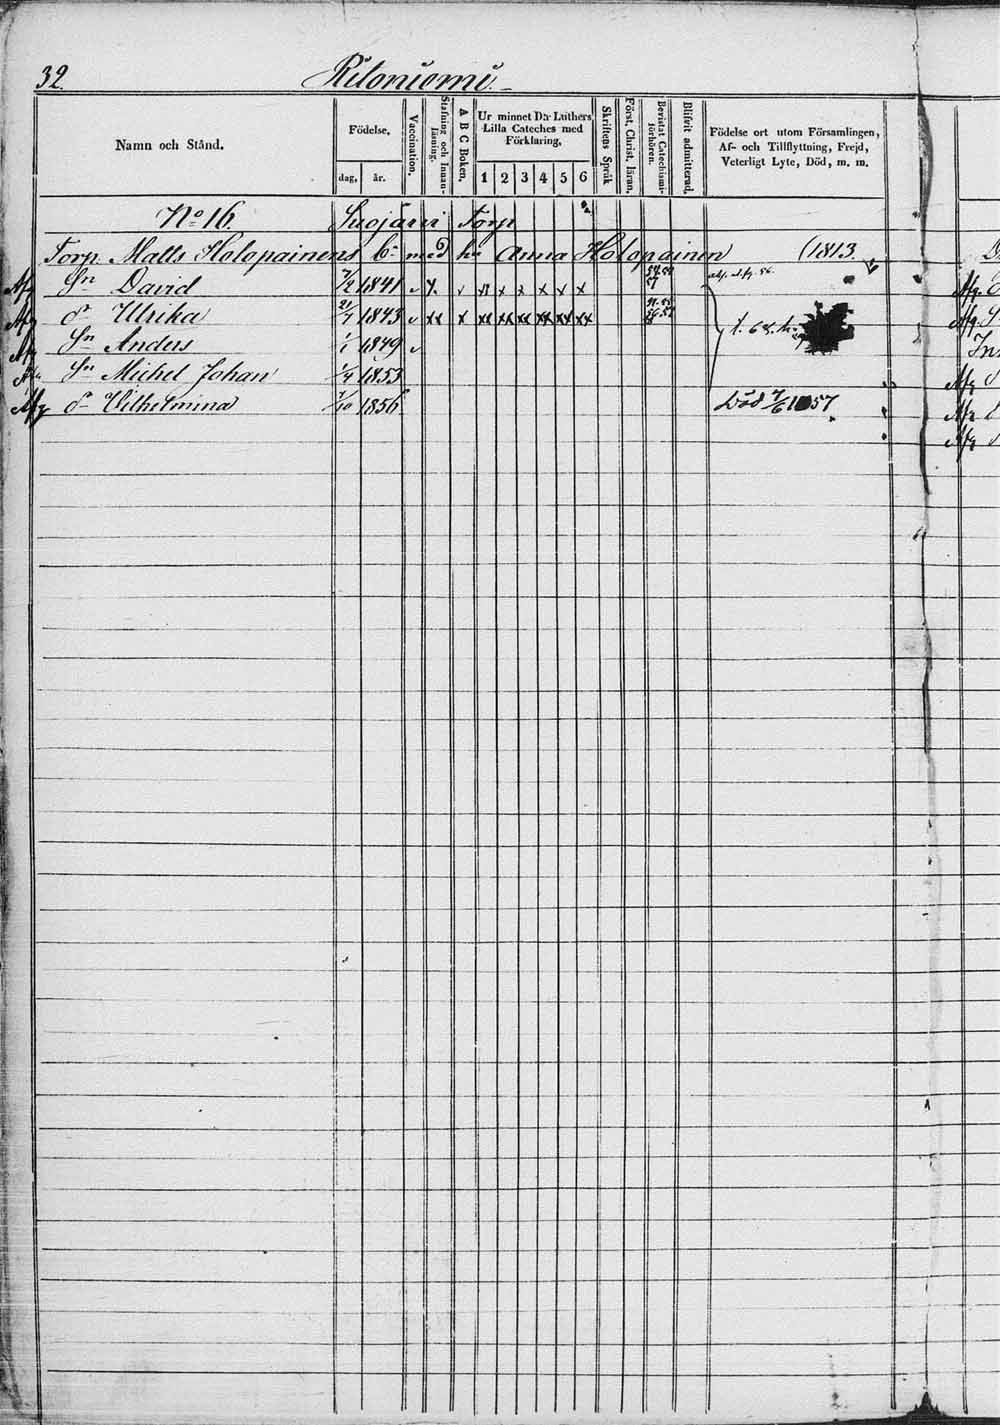 32.
Ritoniemi.
Namn och Stånd.
Födelse,
dag,
år.
Vaccination.
Stafning och Innan-
läsning.
A B C Boken.
Ur minnet D:r Luthers
Lilla Cateches med
Förklaring,
1 2 3 4 5 6
Skriftens Språk
Först. Christ. läran.
Bevistat Catechismi-
förhören.
Blifvit admitterad.
Födelse ort utom Församlingen,
Af- och Tillflyttning, Frejd,
Veterligt Lyte, Död, m. m.
No 16. Suojärvi Torp
Torp. Matts Holopainens b: med hu Anna Holopainen (1813.
Afg Sn David 7/2 1841
Afg d:r Ulrika 21/7 1843
Afg Sn Anders 1/1 1849
Sn Michel Johan 1/9 1853
Afg d:r Vilhelmina 1/10 1856 Död 7/6 1857